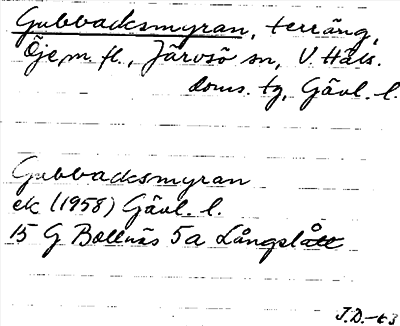 Gubbacksmyran, terräng,
Öje m. fl., Järvsö sn, V. Häls.
doms. tg, Gävl. l.
Gubbacksmyran
ek (1958) Gävl. l.
15 G Bollnäs 5a Långslått
J.D.-63